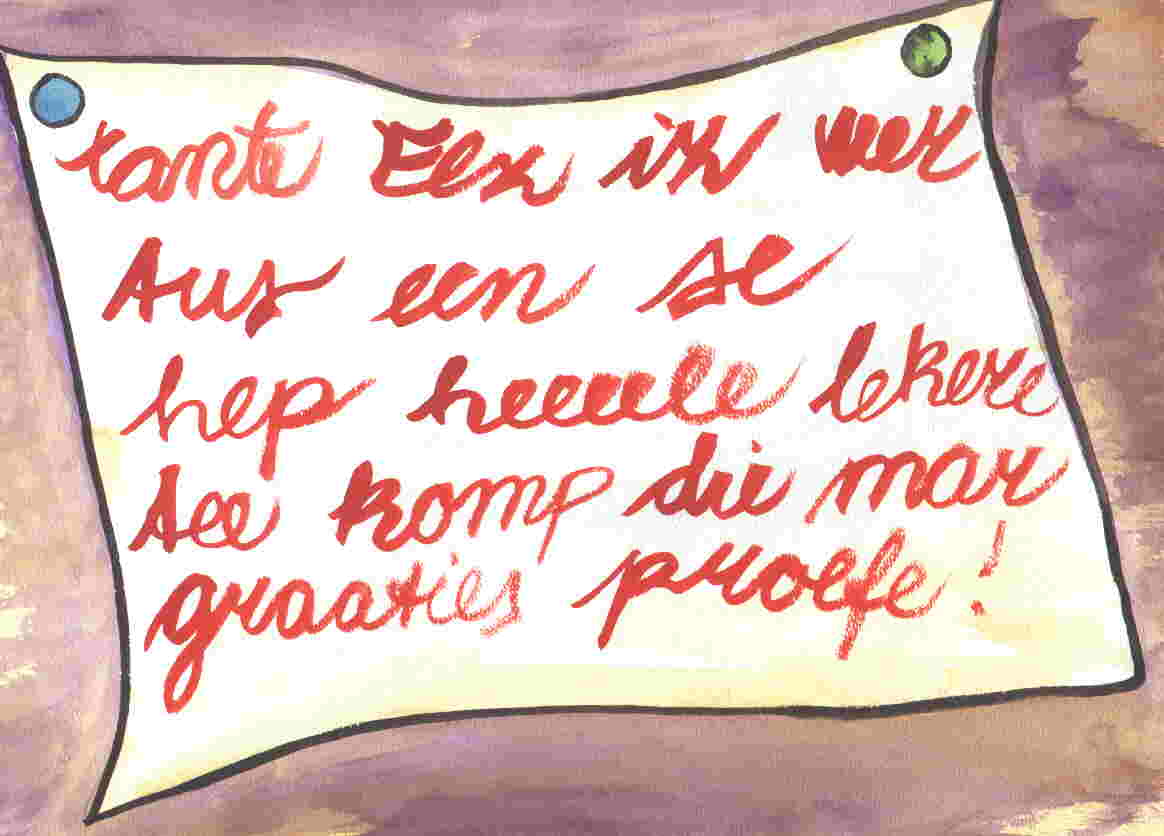 tante Elz ik wer
tuz een se
hep heeeele lekere
tee komp die mar
graaties proefe!